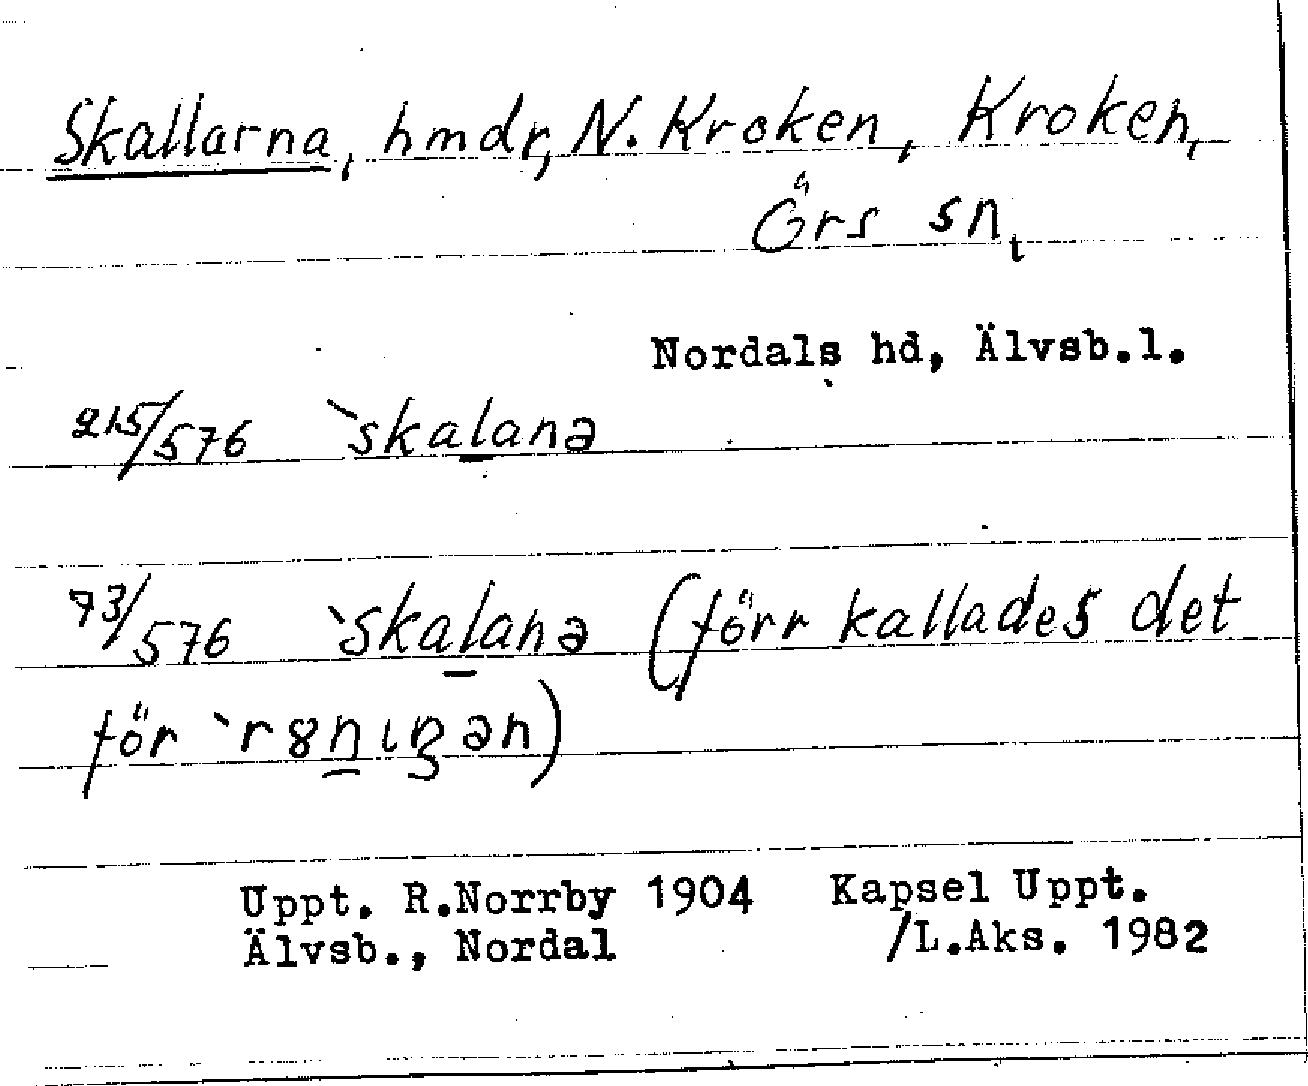 Skallarna, hmdr, N. Kroken, Kroken,
Örs sn,
Nordals hd, Älvsb.l.
215/576 `skal̲anə
73/576 `skal̲anə (förr kallades det
för `r8n̲ıŋən)
Uppt. R.Norrby 1904 Kapsel Uppt.
Älvsb., Nordal /L.Aks. 1982